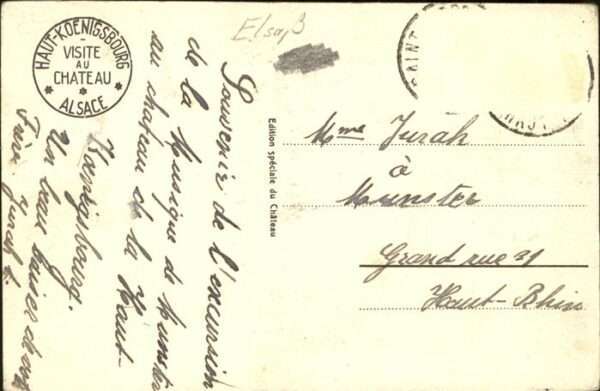 HAUT-KOENIGSBOURG
VISITE
AU
CHATEAU
ALSACE
Elsaß
Souvenir de l'excursion
de la Musique de Munster
au château de la Haut-
Kœnigsbourg.
Un beau baiser de
Jurah
Edition spéciale du Château
Mme Jurah
à
Munster
Grand rue 21
Haut-Rhin